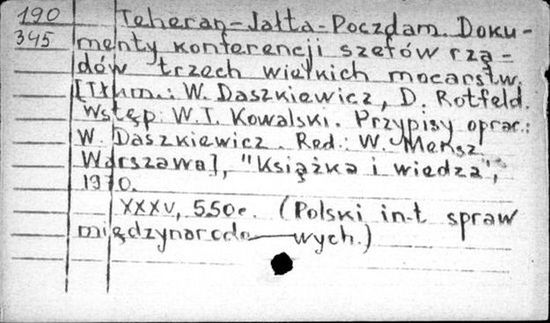 190 Teheran-Jałta-Poczdam. Doku-
345 menty konferencji szefów rzą-
dów trzech wielkich mocarstw.
[Tłum.: W. Daszkiewicz, D. Rotfeld.
Wstęp: W.T. Kowalski. Przypisy oprac.:
W. Daszkiewicz. Red.: W. Meksz
Warszawa], "Książka i wiedza",
1970.
XXXV, 550 c. (Polski in-t spraw
międzynarodo-wych.)